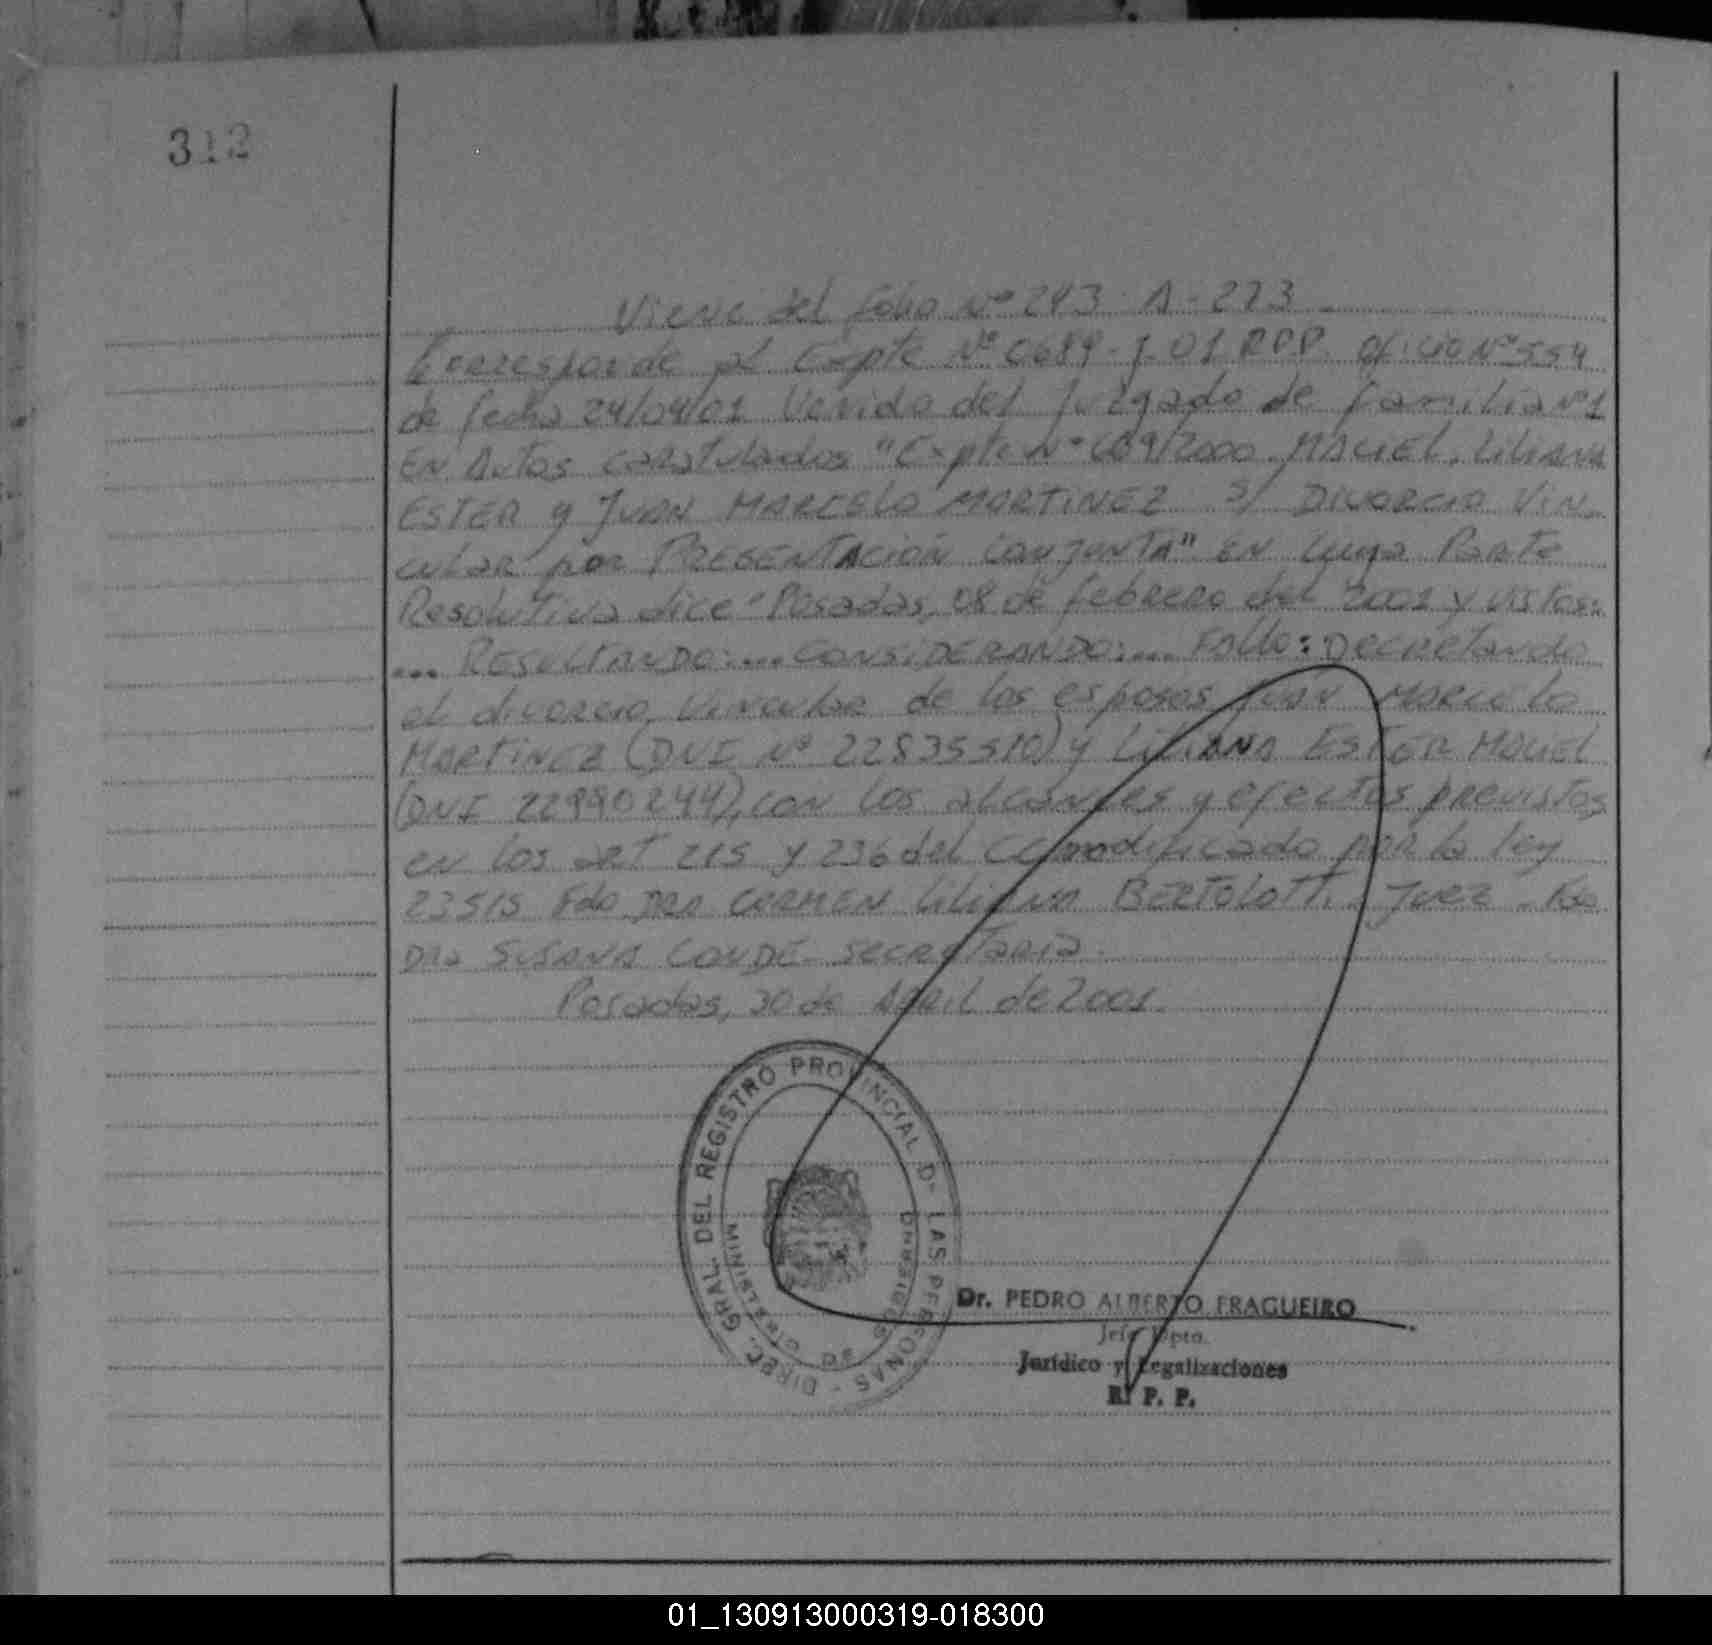 312
Viene del folio Nº 243 A-273
Corresponde al Expte Nº 0689-J-01 RPP. oficio Nº 554
de fecha 24/04/01 Venido del Juzgado de familia nº1
EN Autos caratulados "Expte nº 609/2000 MACIEL, LILIANA
ESTER y JUAN MARCELO MARTINEZ S/ DIVORCIO VIN-
cular por PRESENTACIÓN CONJUNTA" EN cuya Parte
Resolutiva dice "Posadas, 08 de febrero del 2001 y VISTOS:
... RESULTANDO:... CONSIDERANDO:... FALLO: Decretando
el divorcio vincular de los esposos JUAN MARCELO
MARTINEZ (DNI Nº 22835510) y LILIANA ESTER MACIEL
(DNI 22990244), con los alcances y efectos previstos
en los art 215 y 236 del CC modificado por la ley
23515 Fdo DRA CARMEN Liliana BERTOLOTTI. Juez - Fdo
Dra SUSANA CONDE - secretaria.
Posadas, 30 de ABRIL de 2001.
DIREC. GRAL. DEL REGISTRO PROVINCIAL DE LAS PERSONAS -
MINISTERIO DE
Dr. PEDRO ALBERTO FRAGUEIRO
Jefe Dpto.
Jurídico y Legalizaciones
R. P. P.
01_130913000319-018300